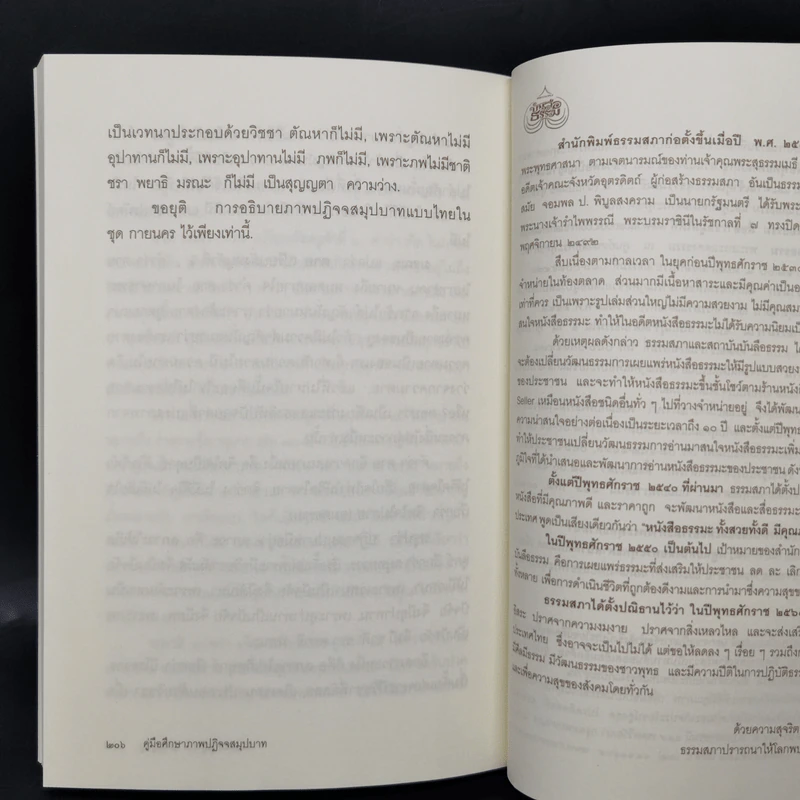 เป็นเวทนาประกอบด้วยวิชชา ตัณหาก็ไม่มี, เพราะตัณหาไม่มี
อุปาทานก็ไม่มี, เพราะอุปาทานไม่มี ภพก็ไม่มี, เพราะภพไม่มีชาติ
ชรา พยาธิ มรณะ ก็ไม่มี เป็นสุญญตา ความว่าง.
ขอยุติ การอธิบายภาพปฏิจจสมุปบาทแบบไทยใน
ชุด กายนคร ไว้เพียงเท่านี้.
๒๐๖ คู่มือศึกษาภาพปฏิจจสมุปบาท
สำนักพิมพ์ธรรมสภาก่อตั้งขึ้นเมื่อปี พ.ศ.
พระพุทธศาสนา ตามเจตนารมณ์ของท่านเจ้าคุณพระสุธรรมเมธี
อดีตเจ้าคณะจังหวัดอุตรดิตถ์ ผู้ก่อสร้างธรรมสภา อันเป็นธรรม
สมัย จอมพล ป. พิบูลสงคราม เป็นนายกรัฐมนตรี ได้รับพระ
พระนางเจ้ารำไพพรรณี พระบรมราชินีในรัชกาลที่ ๗ ทรงปิด
พฤศจิกายน ๒๔๙๒
สืบเนื่องตามกาลเวลา ในยุคก่อนปีพุทธศักราช ๒๕๓๐
จำหน่ายในท้องตลาด ส่วนมากมีเนื้อหาสาระและมีคุณค่าเป็นอ
เท่าที่ควร เป็นเพราะรูปเล่มส่วนใหญ่ไม่มีความสวยงาม ไม่มีคุณสม
สนใจหนังสือธรรมะ ทำให้ในอดีตหนังสือธรรมะไม่ได้รับความนิยมเป็
ด้วยเหตุผลดังกล่าว ธรรมสภาและสถาบันบันลือธรรม ได้
จะต้องเปลี่ยนวัฒนธรรมการเผยแพร่หนังสือธรรมะให้มีรูปแบบสวยง
ของประชาชน และจะทำให้หนังสือธรรมะขึ้นชั้นโชว์ตามร้านหนังสื
Seller เหมือนหนังสือชนิดอื่นทั่ว ๆ ไปที่วางจำหน่ายอยู่ จึงได้พัฒน
ความน่าสนใจอย่างต่อเนื่องเป็นระยะเวลาถึง ๑๐ ปี และตั้งแต่ปีพุทธ
ทำให้ประชาชนเปลี่ยนวัฒนธรรมการอ่านมาสนใจหนังสือธรรมะเพิ่ม
ภูมิใจที่ได้นำเสนอและพัฒนาการอ่านหนังสือธรรมะของประชาชน ดัง
ตั้งแต่ปีพุทธศักราช ๒๕๔๐ ที่ผ่านมา ธรรมสภาได้ตั้งป
หนังสือที่มีคุณภาพดี และราคาถูก จะพัฒนาหนังสือและสื่อธรรมะ
ประเทศ พูดเป็นเสียงเดียวกันว่า "หนังสือธรรมะ ทั้งสวยทั้งดี มีคุณภ
ในปีพุทธศักราช ๒๕๕๐ เป็นต้นไป เป้าหมายของสำนัก
บันลือธรรม คือการเผยแพร่ธรรมะที่ส่งเสริมให้ประชาชน ลด ละ เลิก
ทั้งหลาย เพื่อการดำเนินชีวิตที่ถูกต้องดีงามและการนำมาซึ่งความสุขข
ธรรมสภาได้ตั้งปณิธานไว้ว่า ในปีพุทธศักราช ๒๕๖๐
อิสระ ปราศจากความงมงาย ปราศจากสิ่งเหลวไหล และจะส่งเสริ
ประเทศไทย ซึ่งอาจจะเป็นไปไม่ได้ แต่ขอให้ลดลง ๆ เรื่อย ๆ รวมถึงก
มีศีลมีธรรม มีวัฒนธรรมของชาวพุทธ และมีความปีติในการปฏิบัติธรร
และเพื่อความสุขของสังคมโดยทั่วกัน
ด้วยความสุจริต
ธรรมสภาปรารถนาให้โลกพบ